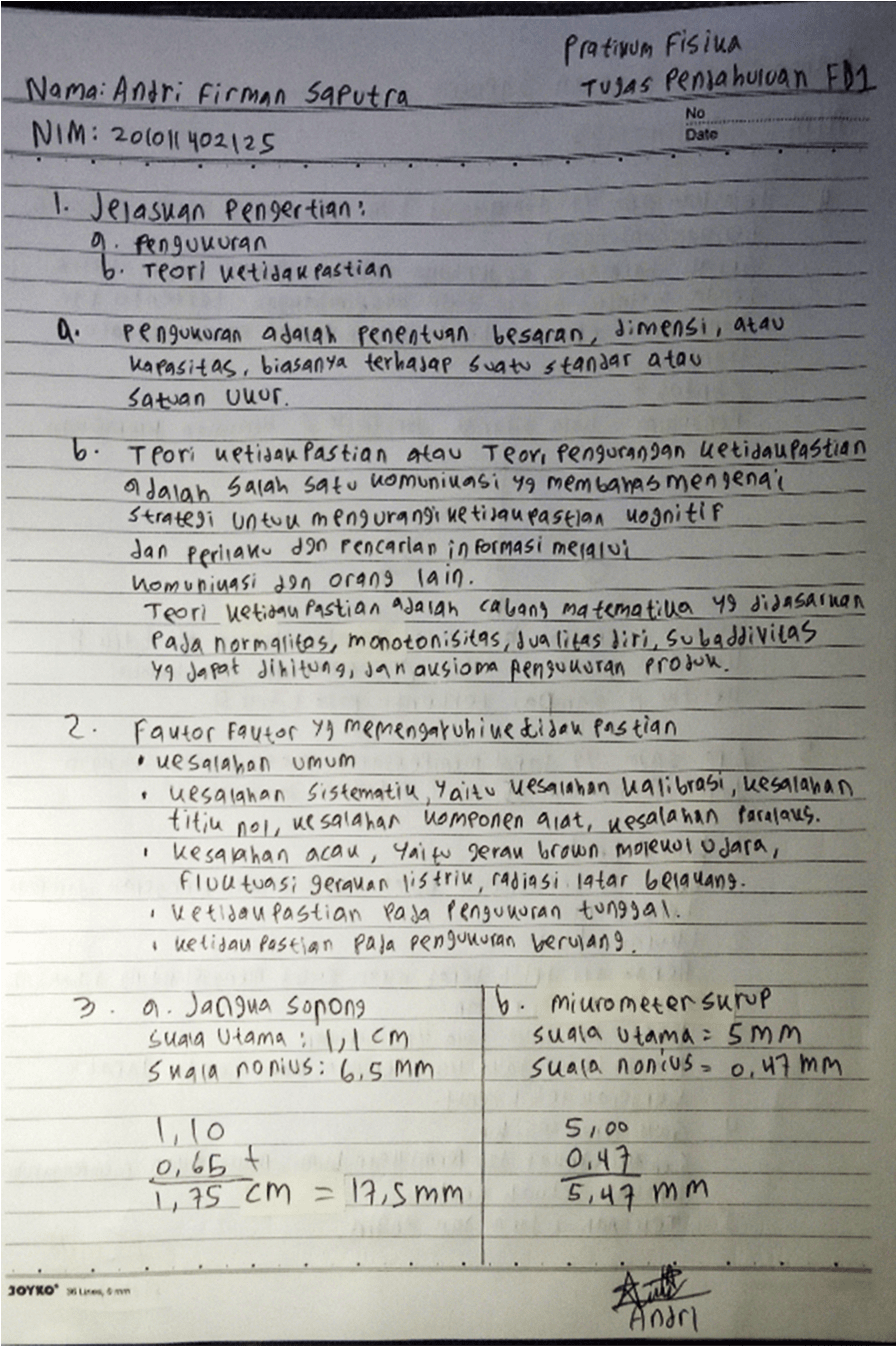 Pratikum Fisika
Nama: Andri Firman Saputra
Tugas Pendahuluan FD1
NIM: 201011402125
No
Date
1. Jelaskan Pengertian:
a. Pengukuran
b. Teori ketidakpastian
a. Pengukuran adalah penentuan besaran, dimensi, atau
kapasitas, biasanya terhadap suatu standar atau
satuan ukur.
b. Teori ketidakpastian atau Teori pengurangan ketidakpastian
adalah salah satu komunikasi yg membahas mengenai
strategi untuk mengurangi ketidakpastian kognitif
dan perilaku dgn pencarian informasi melalui
komunikasi dgn orang lain.
Teori ketidakpastian adalah cabang matematika yg didasarkan
pada normalitas, monotonisitas, dualitas diri, subaddivitas
yg dapat dihitung, dan aksioma pengukuran produk.
2. Faktor Faktor yg memengaruhi ketidak pastian
• kesalahan umum
• kesalahan sistematik, yaitu kesalahan kalibrasi, kesalahan
titik nol, kesalahan komponen alat, kesalahan paralaks.
• kesalahan acak, yaitu gerak brown molekul udara,
fluktuasi gerakan listrik, radiasi latar belakang.
• ketidakpastian pada pengukuran tunggal.
• ketidakpastian pada pengukuran berulang.
3. a. Jangka Sopong
skala utama : 1,1 cm
skala nonius : 6,5 mm
1,10
0,65 +
1,75 cm = 17,5 mm
b. mikrometer skrup
skala utama = 5 mm
skala nonius = 0,47 mm
5,00
0,47
5,47 mm
JOYKO® 36 Lines, 6 mm
Andri